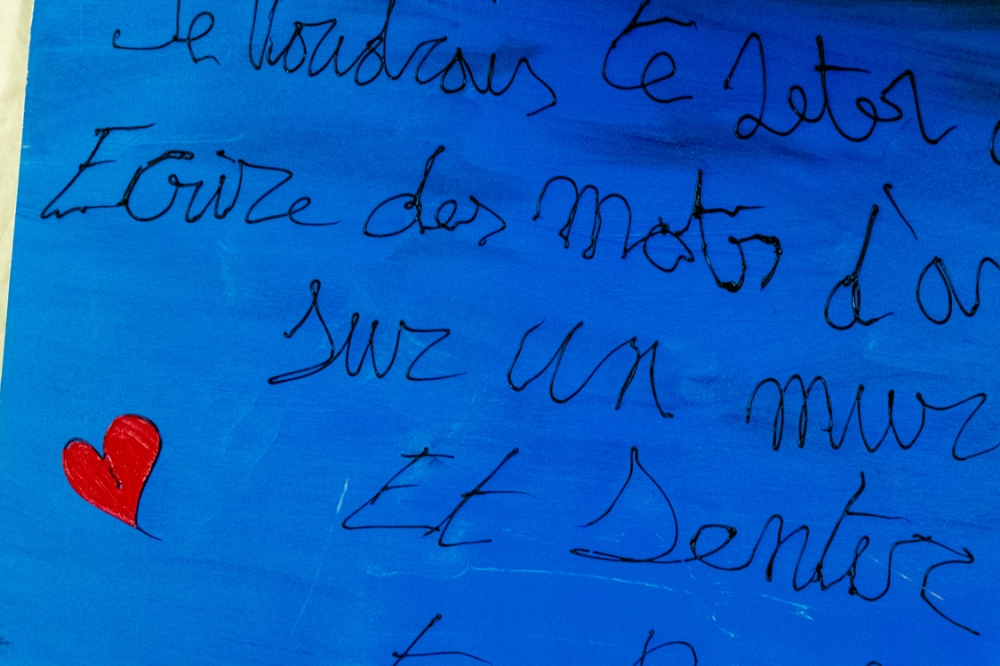 Je voudrais te
Ecrire des mots d'a
sur un mur
Et Sentir